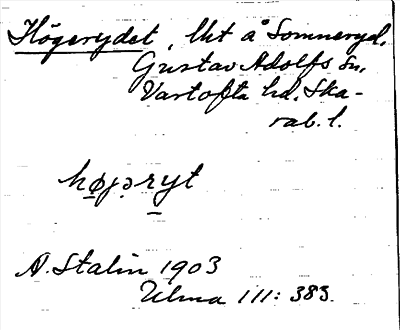 Högerydet, lht å Somneryd,
Gustav Adolfs sn,
Vartofta hd. Ska-
rab. l.
højəryt
A. Stalin 1903
Ulma 111: 383.